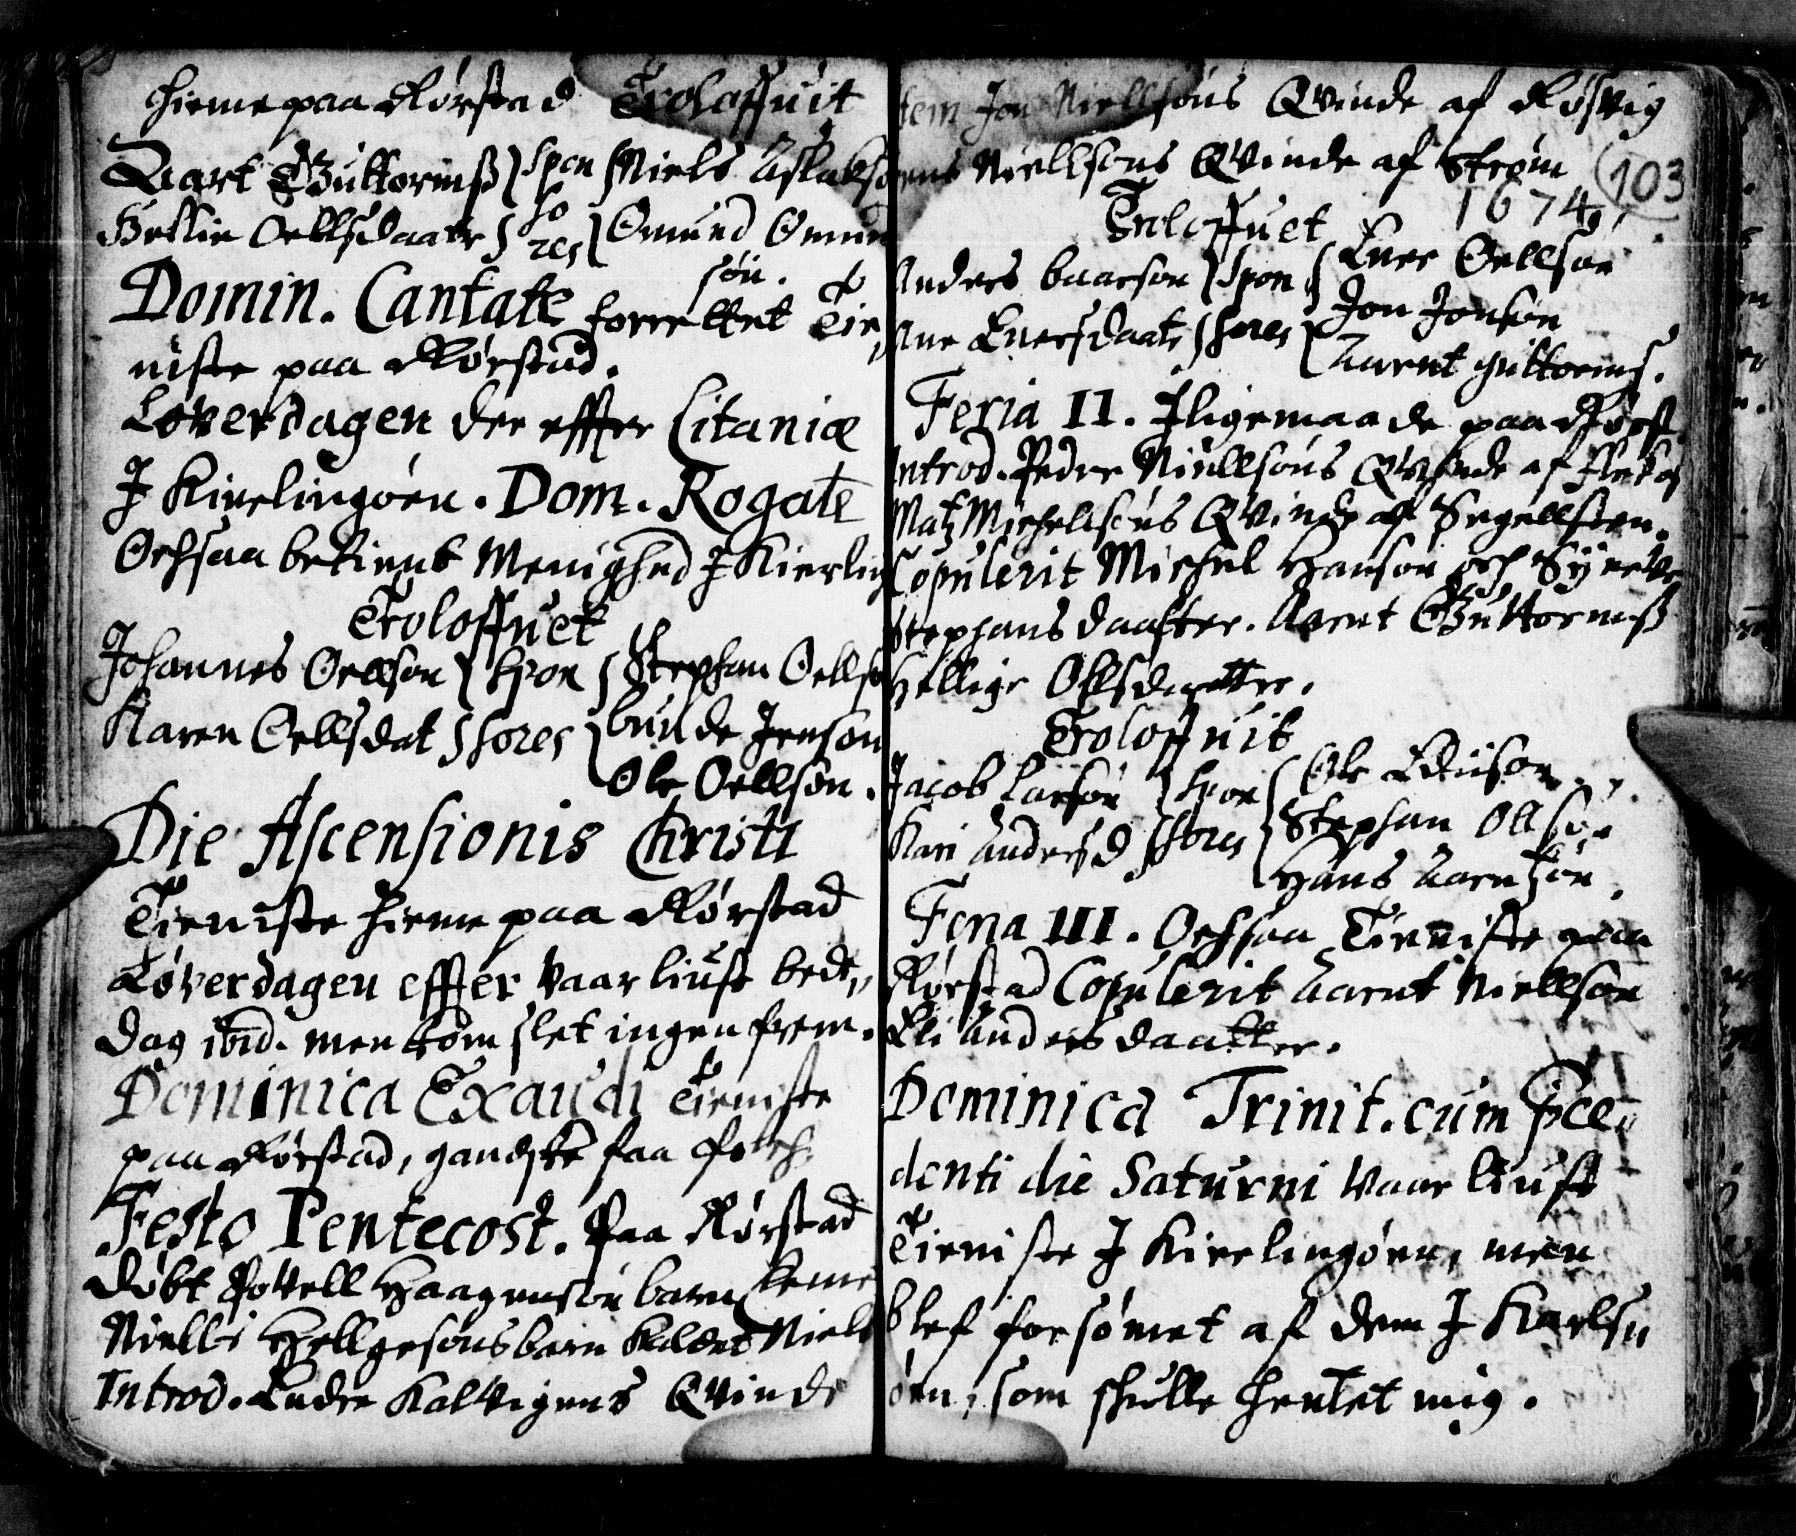 hieme paa Rørstad Troloffuit
Aart Guttormß } spon { Niels Aslaks
Hellie Oellsdaatr } so res { Omund Omund
søn.
Domin. Cantate forrettet Tie„
niste paa Rørstad.
Løverdagen der effter Litaniæ
J Kierlingøen. Dom. Rogate
Ochsaa betient Menighed J Kierling
Troloffuet
Johannes Oellson } spon { Stephan Oellsø
Karen Oellsdat } sores { Jenson
Ole Oellsøn.
Die Ascensionis Christi
Tieniste hieme paa Rørstad
Løverdagen effter vaar liust bede„
dag ibid. men kom slet ingen frem.
Dominica Exaudi Tieniste
paa Rørstad, gandske faa folch.
Festo Pentecost. Paa Rørstad
døbt Povell Haagensøn barn
Niells Hellgesøns barn kaldet Niels
Introd. Endre Kalvigens Qvinde
Item Jon Niellsøns Qvinde af Røsvig
Jens Niellsøns Qvinde af Strøm
103
1674
Troloffuet
Anders baarson } spon { Ener Oellsøn
Ane Enersdaatr } sores { Jon Jonsøn
Aarnt guttorms.
Feria II. Jligemaade paa Rørst.
Introd. Peder Niellsøns Qvinde af
Matz Michelsøns Qvinde af Segellsten.
Copulerit Michel Hanson och Syneve
Stephans daatter. Arent Guttormß
Hellige Ollsdaatter.
Troloffuit
Jacob Larsøn } spon { Ole
Kari Andersd } sores { Stephan Olsøn
Hans Aarntzøn.
Feria III. Ochsaa Tieniste paa
Rørstad Copulerit Aarnt Niellsøn
Eli Anders daatter.
Dominica Trinit. cum pce„
denti die Saturni vaar liust
Tieniste J Kierlingøen, men
blef forsømet af dem J Karls„
øen, som skulle hentet mig.